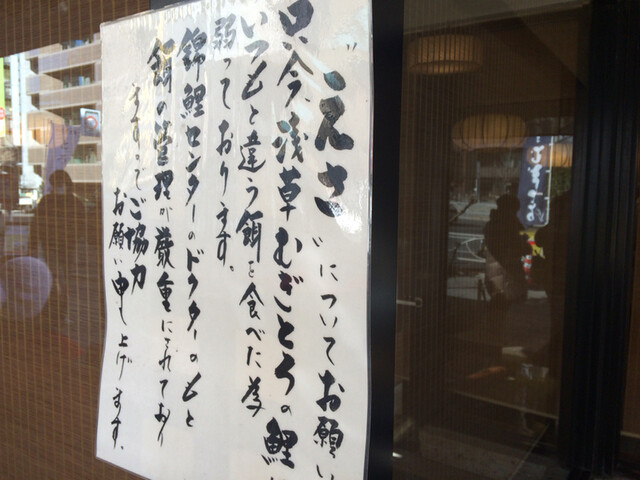 "えさ"についてお願い
只今浅草むぎとろの鯉
いつもと違う餌を食べた為
弱っております。
錦鯉センターのドクターのもと
餌の管理が厳重にされており
ますのでご協力
お願い申し上げます。
むぎとろ